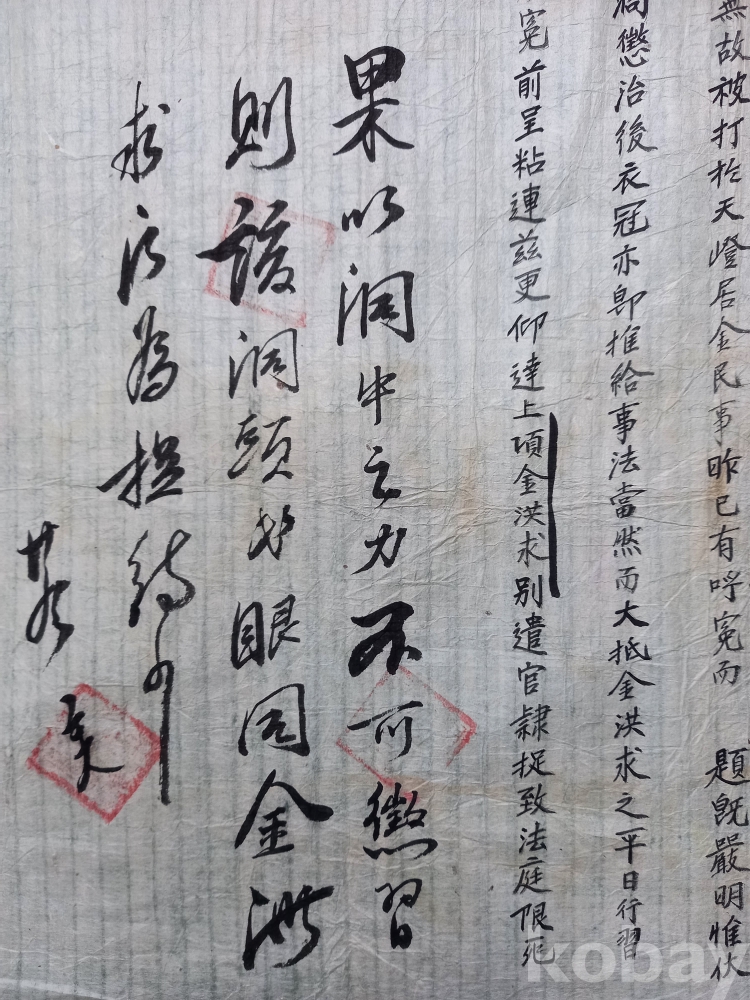 無故被打於天嶝居金民事昨已有呼寃而 題旣嚴明惟伏
洞懲治後衣冠亦卽推給事法當然而大抵金洪求之平日行習
寃前呈粘連玆更仰達上項金洪求別遣官隷捉致法庭限死
果以洞中之力不可懲習
則該洞頭民眼同金洪
求反爲捉待向
kobay